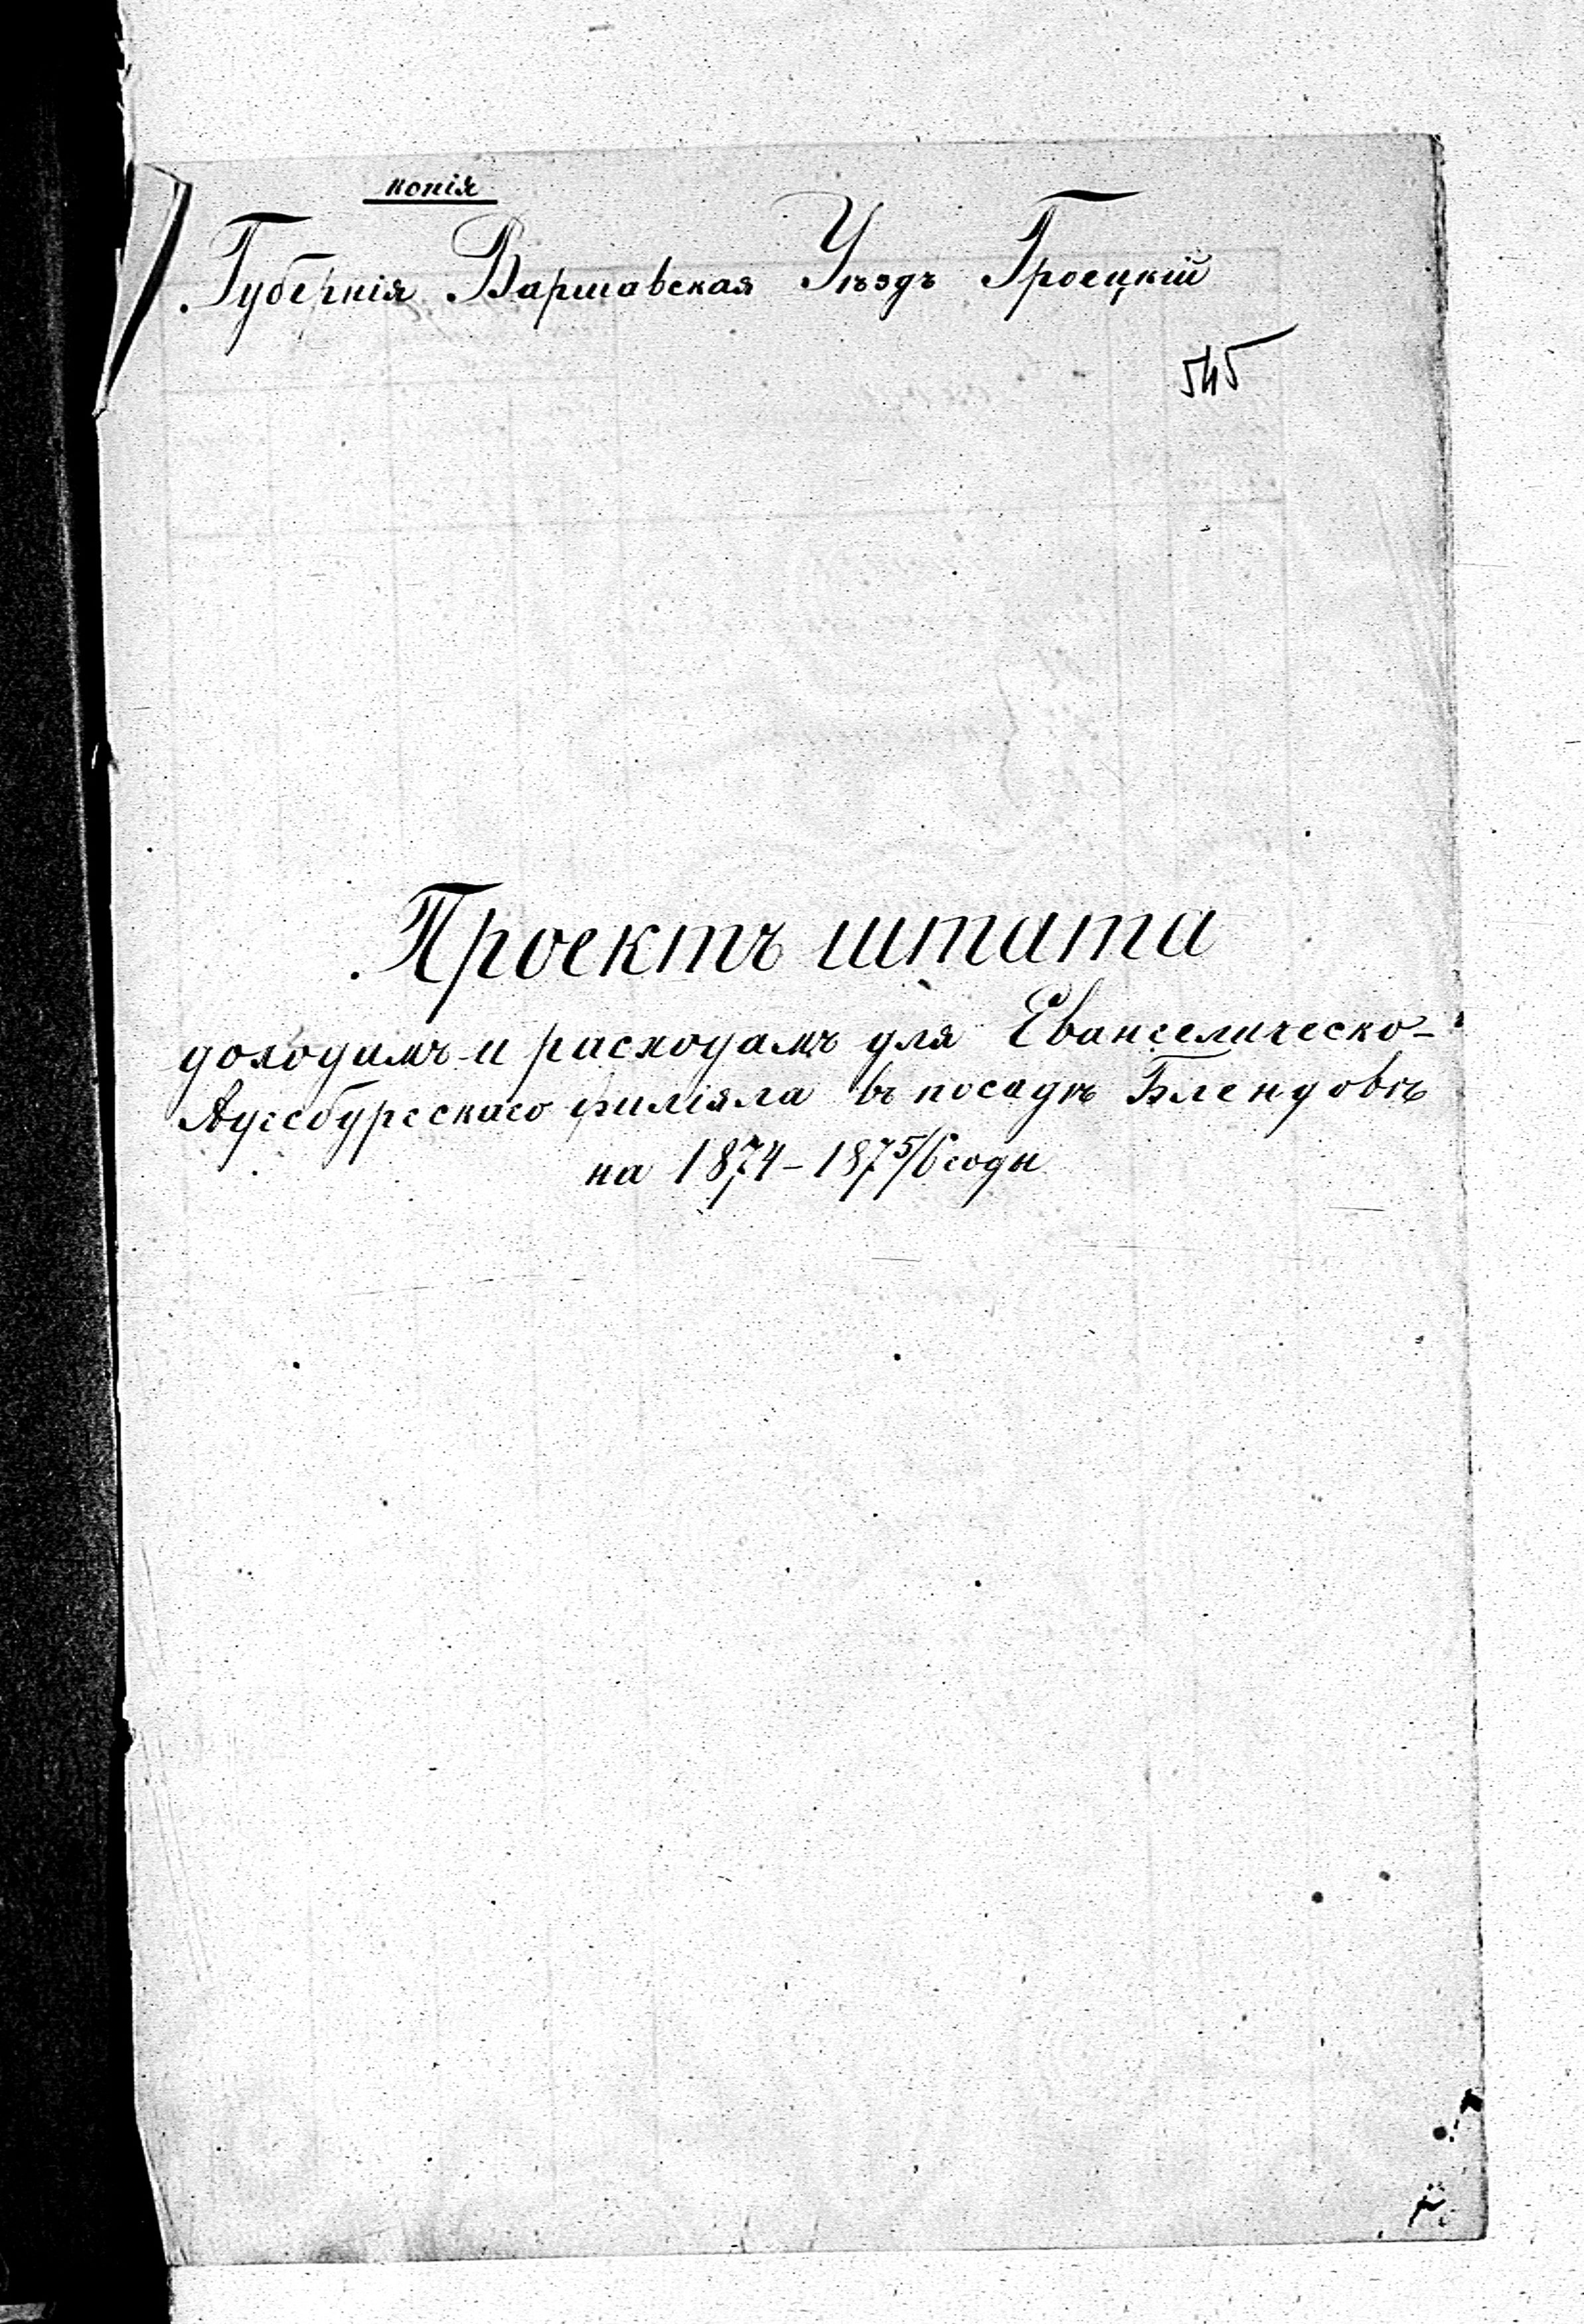 копія
Губернія Варшавская Уѣздъ Гроецкій
545
Проектъ штата
доходамъ и расходамъ для Евангелическо-
Аугсбургскаго филіяла въ посадѣ Блендовѣ
на 1874–1875/6 годы